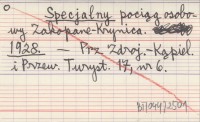 Specjalny pociąg osobo-
wy Zakopane-Krynica.
1928. — Prz. Zdroj.-Kąpiel.
i Przew. Turyst. 17, nr 6.